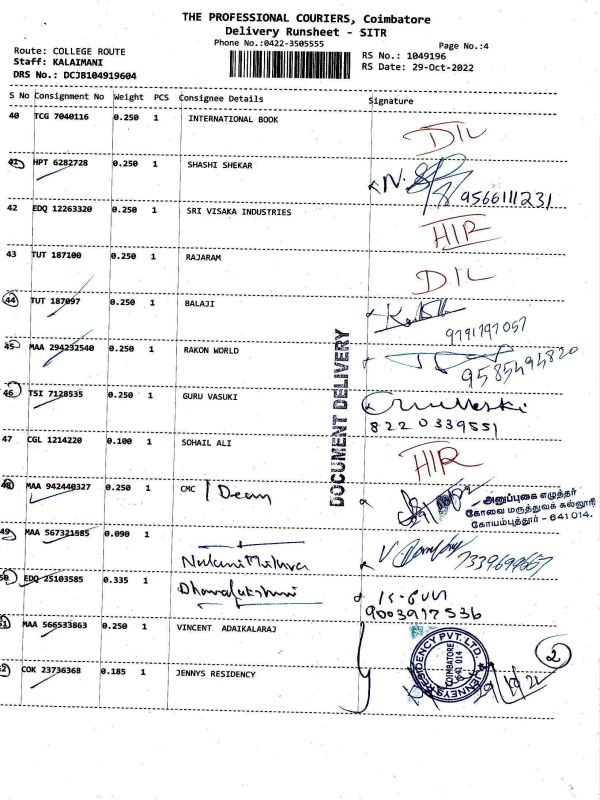 THE PROFESSIONAL COURIERS, Coimbatore
Delivery Runsheet - SITR
Phone No.:0422-3505555
Page No.:4
Route: COLLEGE ROUTE
Staff: KALAIMANI
DRS No.: DCJB104919604
RS No.: 1049196
RS Date: 29-Oct-2022
S No Consignment No Weight PCS Consignee Details Signature
40 TCG 7040116 0.250 1 INTERNATIONAL BOOK DIL
41 HPT 6282728 0.250 1 SHASHI SHEKAR
9566111231
42 EDQ 12263320 0.250 1 SRI VISAKA INDUSTRIES HIR
43 TUT 187100 0.250 1 RAJARAM DIL
44 TUT 187097 0.250 1 BALAJI
9791797057
45 MAA 294232540 0.250 1 RAKON WORLD
9585494820
46 TSI 7128535 0.250 1 GURU VASUKI
8220339551
47 CGL 1214220 0.100 1 SOHAIL ALI HIR
48 MAA 942440327 0.250 1 CMC / Dean
அனுப்புகை எழுத்தர்
கோவை மருத்துவக் கல்லூரி
கோயம்புத்தூர் - 641014.
49 MAA 567321585 0.090 1
50 EDQ 25103585 0.335 1
9003917536
51 MAA 566533863 0.250 1 VINCENT ADAIKALARAJ
52 COK 23736368 0.185 1 JENNYS RESIDENCY
DOCUMENT DELIVERY
JENNEYS RESIDENCY PVT. LTD.
COIMBATORE
641 014
2